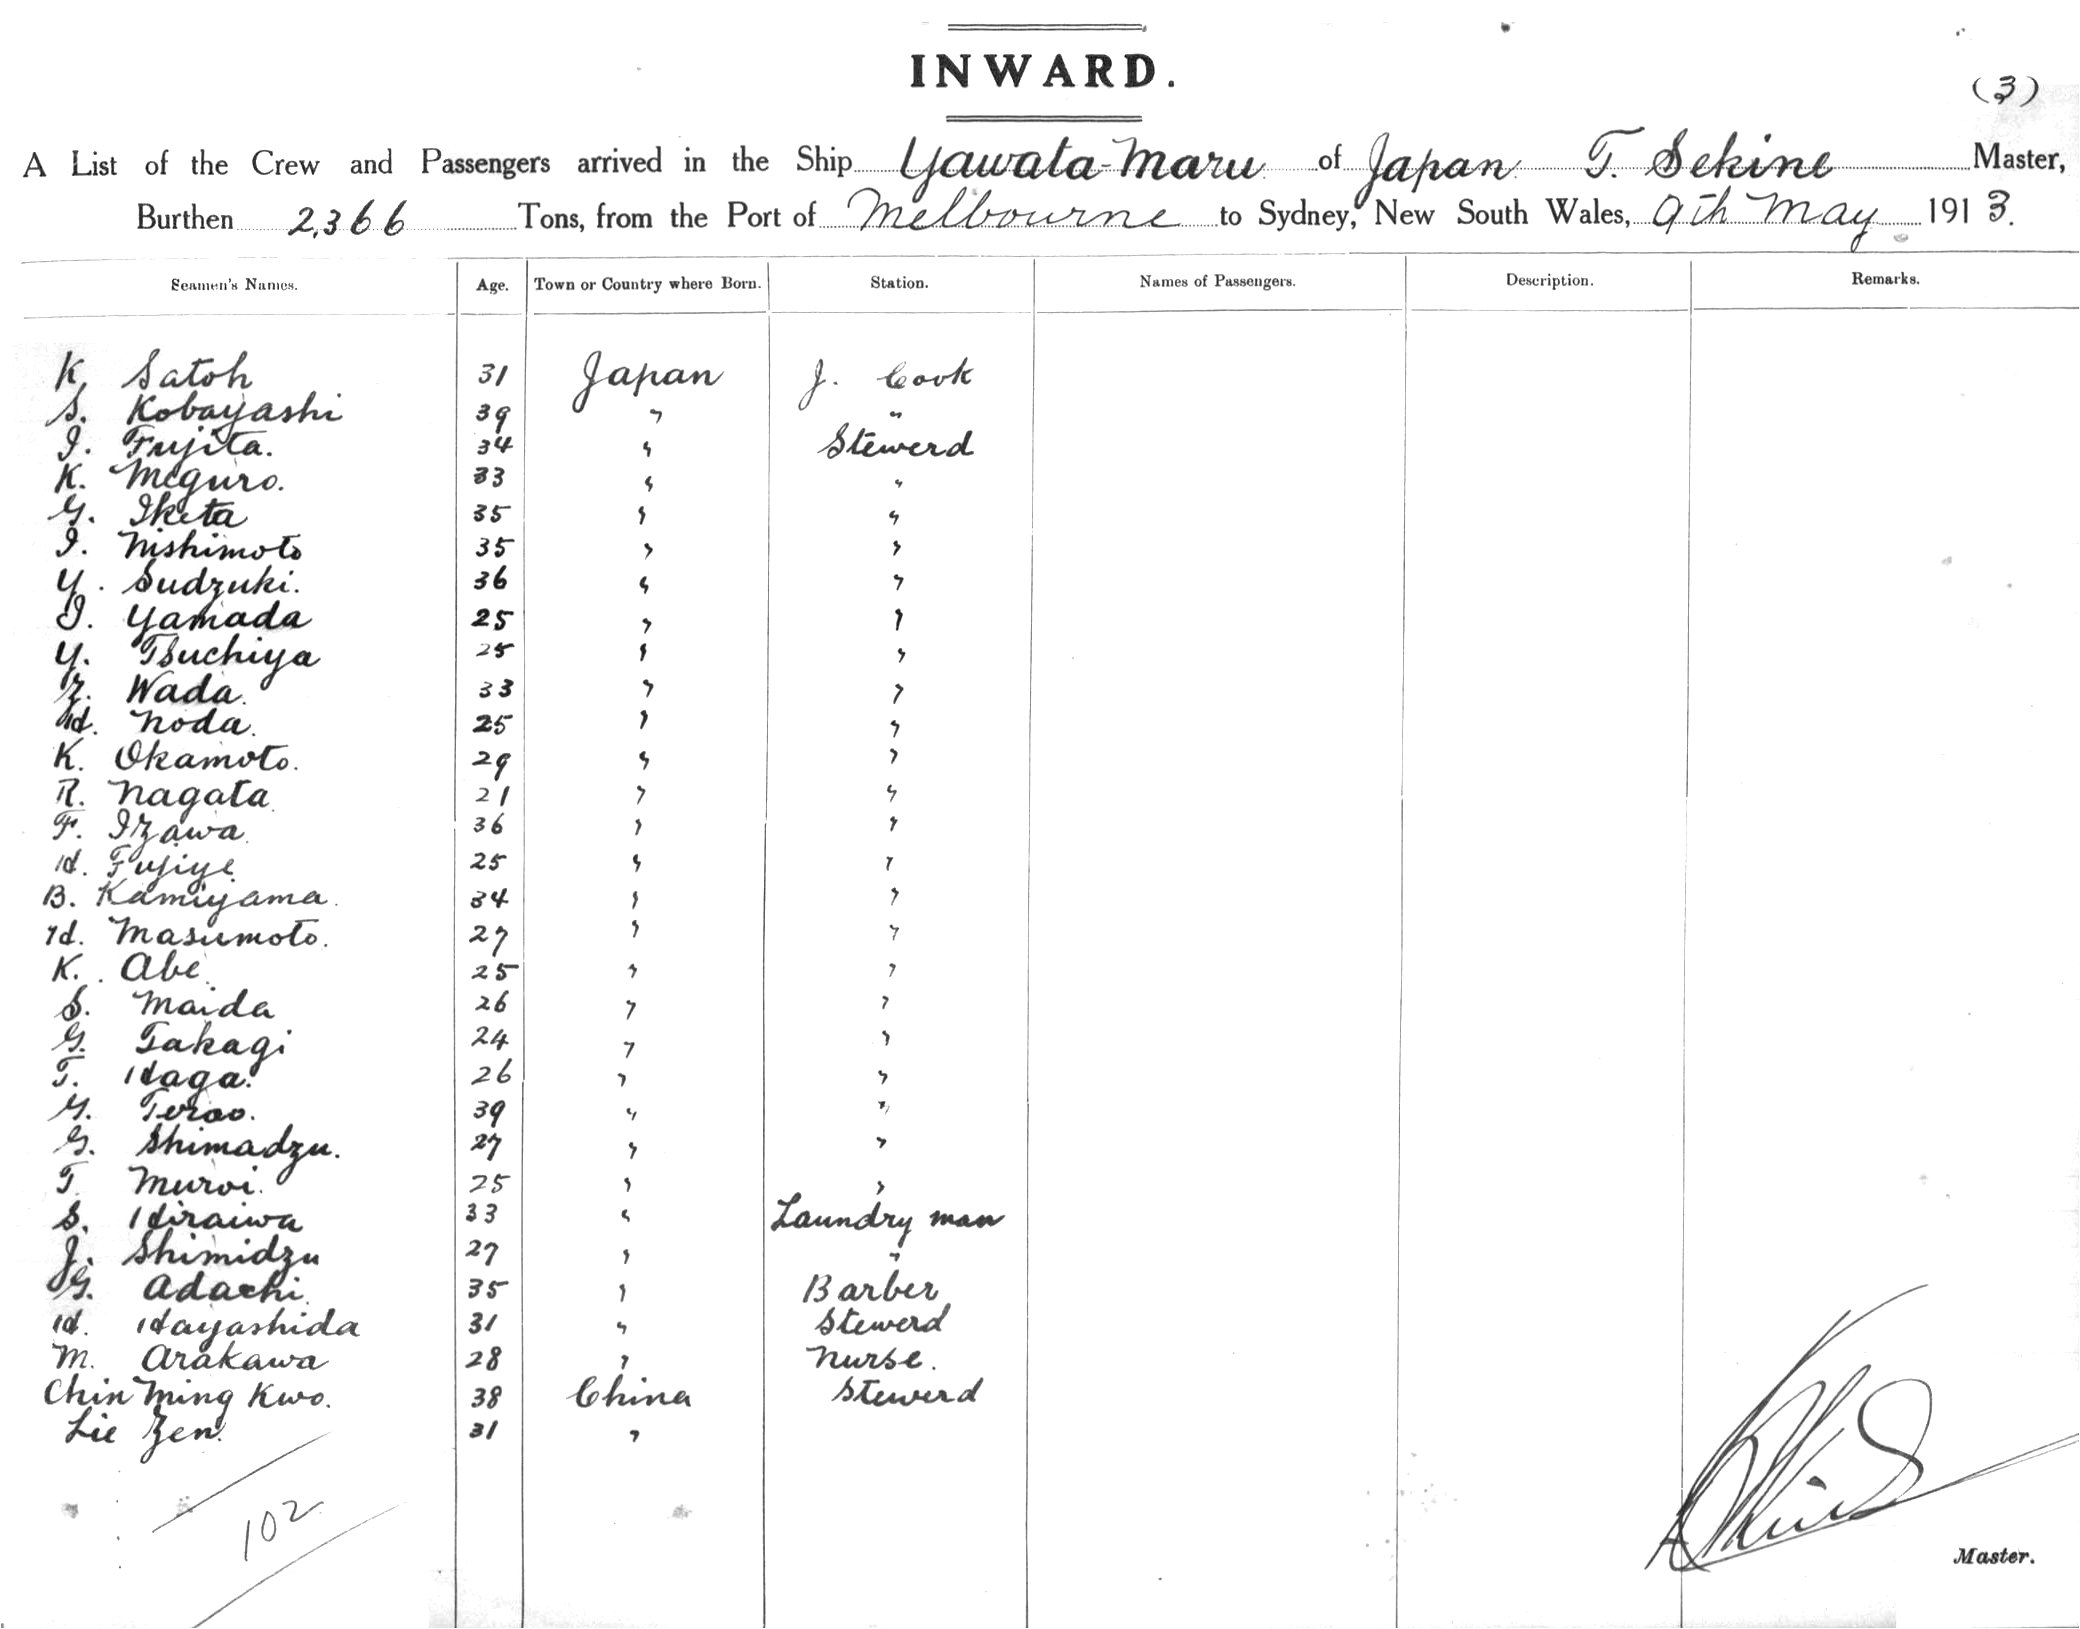 INWARD.
(3)
A List of the Crew and Passengers arrived in the Ship Yawata-Maru of Japan T. Sekine Master,
Burthen 2,366 Tons, from the Port of Melbourne to Sydney, New South Wales, 9th May 1913.
Seamen's Names. Age. Town or Country where Born. Station. Names of Passengers. Description. Remarks.
K. Satoh 31 Japan J. Cook
S. Kobayashi 39 " "
I. Fujita. 34 " Stewerd
K. Meguro. 33 " "
G. Iketa 35 " "
I. Nishimoto 35 " "
Y. Sudzuki. 36 " "
I. Yamada 25 " "
Y. Tsuchiya 25 " "
Z. Wada. 33 " "
H. Noda. 25 " "
K. Okamoto. 29 " "
R. Nagata 21 " "
F. Izawa. 36 " "
H. Fujiye 25 " "
B. Kamiyama. 34 " "
H. Masumoto. 27 " "
K. Abe. 25 " "
S. Maida 26 " "
G. Takagi 24 " "
T. Haga. 26 " "
Y. Terao. 39 " "
G. Shimadzu. 27 " "
T. Muroi. 25 " "
S. Hiraiwa 33 " Laundry man
J. Shimidzu 27 " "
G. Adachi. 35 " Barber
H. Hayashida 31 " Stewerd
M. Arakawa 28 " Nurse.
Chin Ming Kwo. 38 China Stewerd
Lie Zen. 31 "
102
Master.